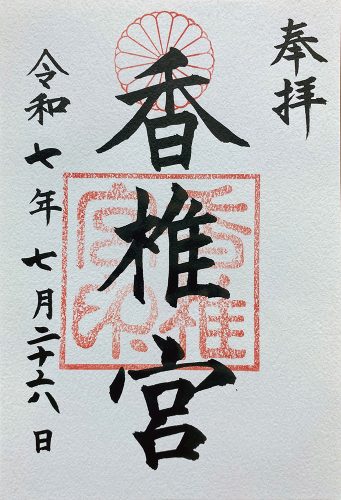 奉拝
香椎宮
香椎宮印
令和七年七月二十六日